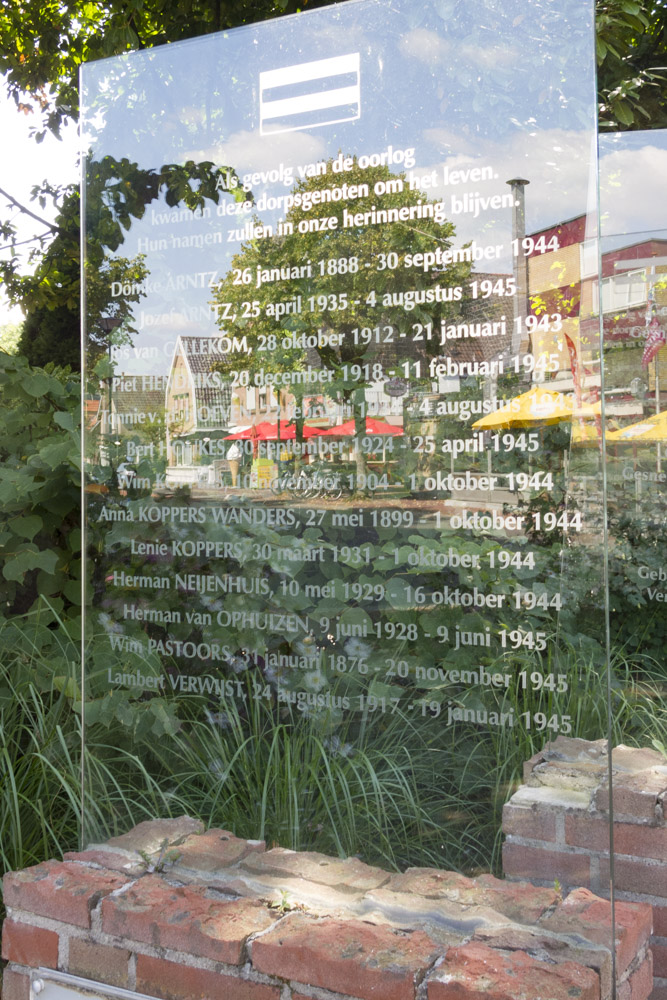 Als gevolg van de oorlog
kwamen deze dorpsgenoten om het leven.
Hun namen zullen in onze herinnering blijven.
ARNTZ, 26 januari 1888 - 30 september 1944
Jozef ARNTZ, 25 april 1935 - 4 augustus 1945
van GALLEKOM, 28 oktober 1912 - 21 januari 1943
Piet HENDRIKS, 20 december 1918 - 11 februari 1945
- 4 augustus
Bert 30 september 1924 - 25 april 1945
Wim 10 november 1904 - 1 oktober 1944
Anna KOPPERS WANDERS, 27 mei 1899 - 1 oktober 1944
Lenie KOPPERS, 30 maart 1931 - 1 oktober 1944
Herman NEIJENHUIS, 10 mei 1929 - 16 oktober 1944
Herman van OPHUIZEN, 9 juni 1928 - 9 juni 1945
Wim PASTOORS, januari 1876 - 20 november 1945
Lambert VERWIJST, 24 augustus 1917 - 19 januari 1945